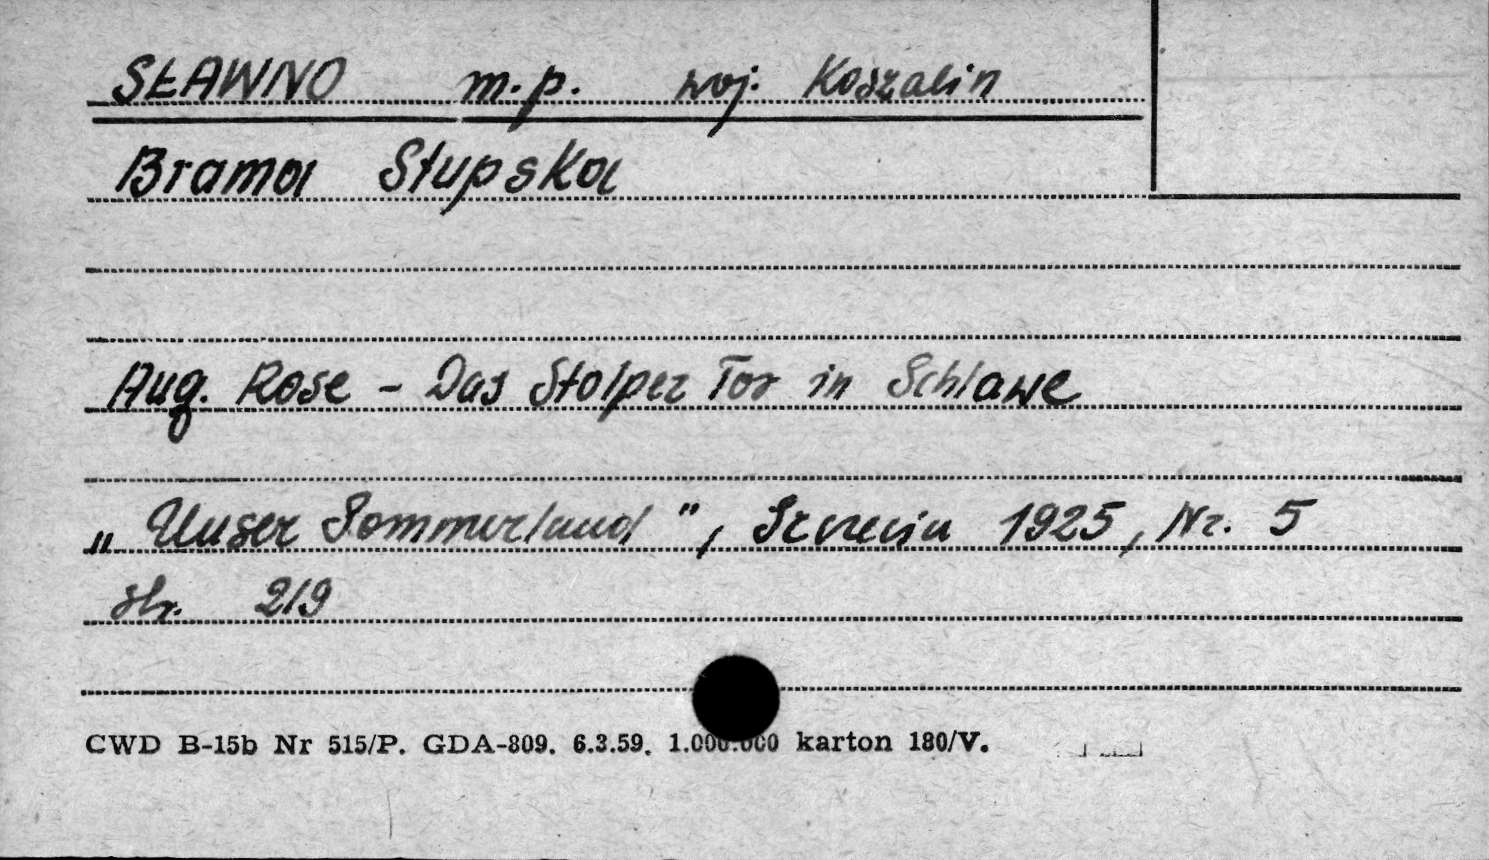 SŁAWNO m.p. woj. Koszalin
Brama Słupska
Aug. Rose - Das Stolper Tor in Schlawe
„Unser Pommerland", Szczecin 1925, Nr. 5
str. 219
CWD B-15b Nr 515/P. GDA-809. 6.3.59. 1.000.000 karton 180/V.